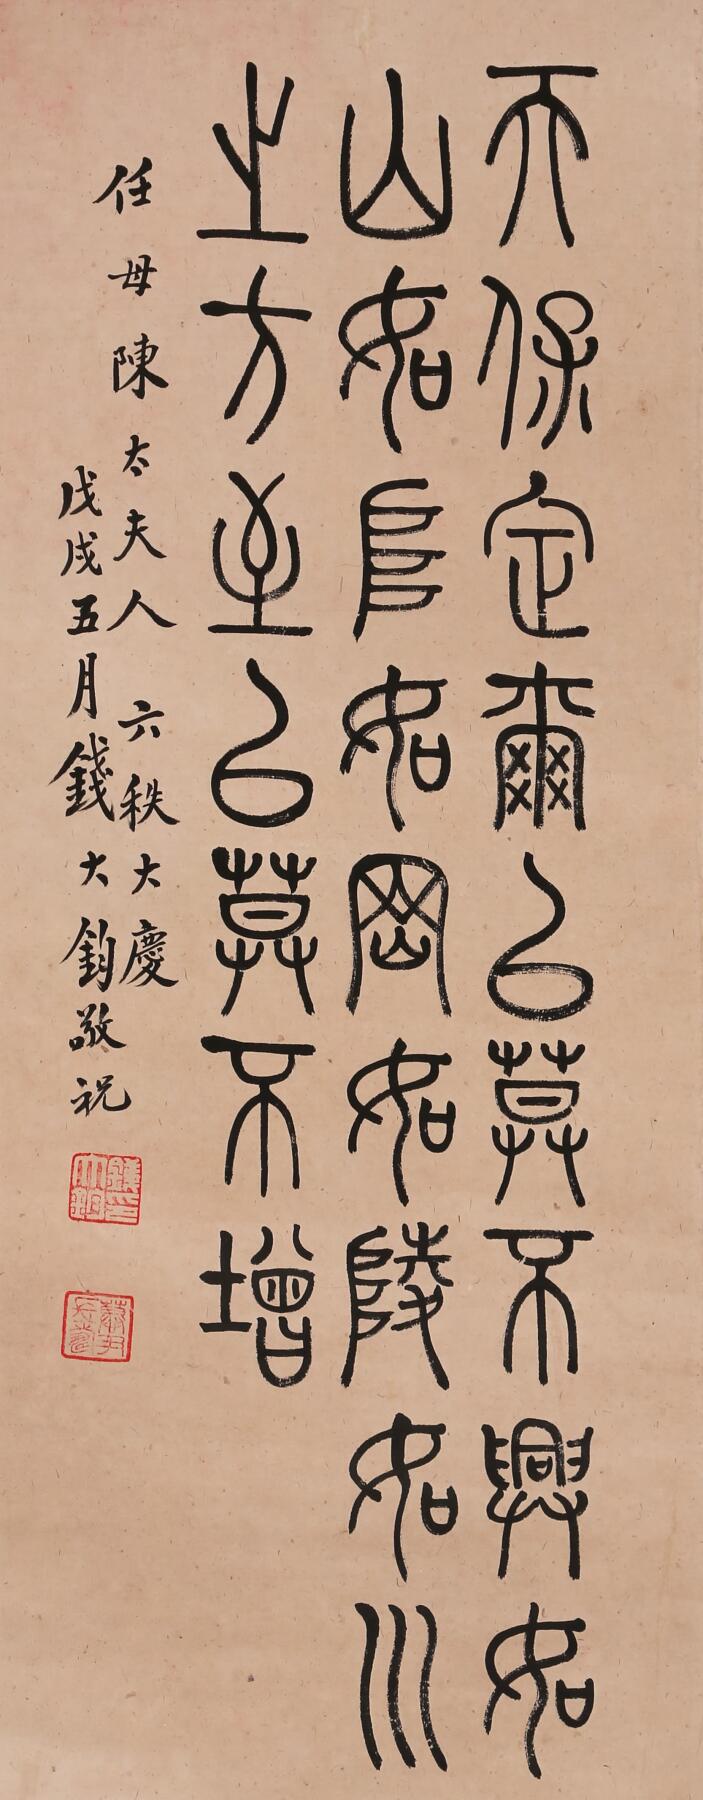 天保定爾以莫不興如
山如阜如岡如陵如川
之方至以莫不增
任母陳太夫人 六秩大慶
戊戌五月錢大鈞敬祝
錢大鈞印